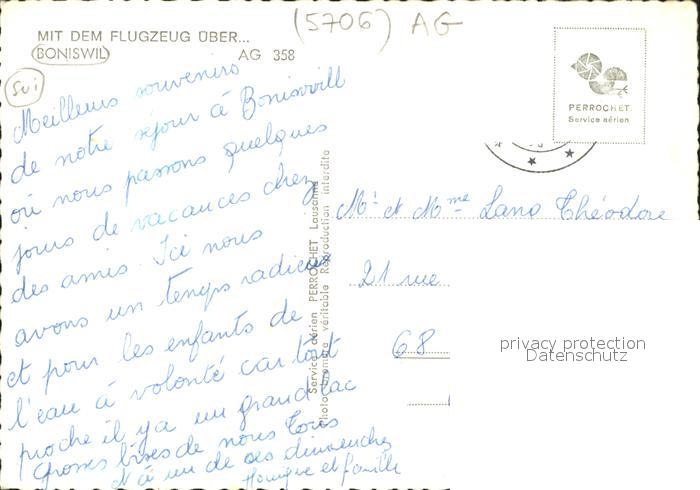 (5706) AG
MIT DEM FLUGZEUG ÜBER...
BONISWIL AG 358
PERROCHET
Service aérien
Meilleurs souvenirs
de notre séjour à Boniswill
où nous passons quelques
jours de vacances chez
des amis. Ici nous
avons un temps radieux
et pour les enfants de
l'eau à volonté car tout
proche il y a un grand lac
Grosses bises de nous tous
et à un de ces dimanches
et famille
Service aérien PERROCHET Lausanne
Photographie véritable Reproduction interdite
Mr et Mme Lang Théodore
21 rue
68
privacy protection
Datenschutz